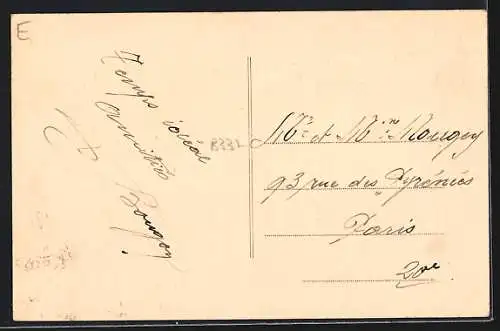 E
Temps idéal
Amitiés
Bougoz
8331
Mr et Mme Mougey
93 rue des Pyrénées
Paris
20e